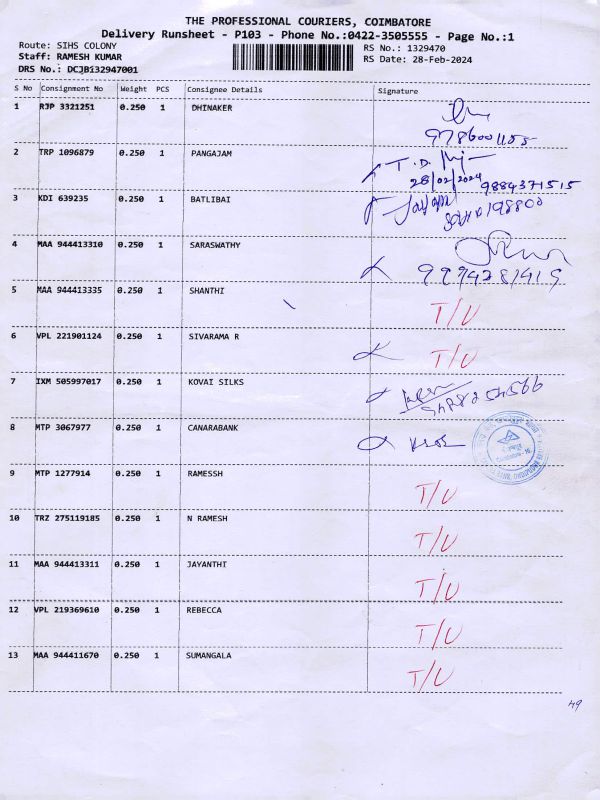 THE PROFESSIONAL COURIERS, COIMBATORE
Delivery Runsheet - P103 - Phone No.:0422-3505555 - Page No.:1
Route: SIHS COLONY RS No.: 1329470
Staff: RAMESH KUMAR RS Date: 28-Feb-2024
DRS No.: DCJB132947001
S No Consignment No Weight PCS Consignee Details Signature
1 RJP 3321251 0.250 1 DHINAKER
2 TRP 1096879 0.250 1 PANGAJAM T.D.
28/02/2024 9884371515
3 KDI 639235 0.250 1 BATLIBAI
4 MAA 944413310 0.250 1 SARASWATHY
9994281419
5 MAA 944413335 0.250 1 SHANTHI T/U
6 VPL 221901124 0.250 1 SIVARAMA R T/U
7 IXM 505997017 0.250 1 KOVAI SILKS
8 MTP 3067977 0.250 1 CANARABANK
9 MTP 1277914 0.250 1 RAMESSH T/U
10 TRZ 275119185 0.250 1 N RAMESH T/U
11 MAA 944413311 0.250 1 JAYANTHI T/U
12 VPL 219369610 0.250 1 REBECCA T/U
13 MAA 944411670 0.250 1 SUMANGALA T/U
49